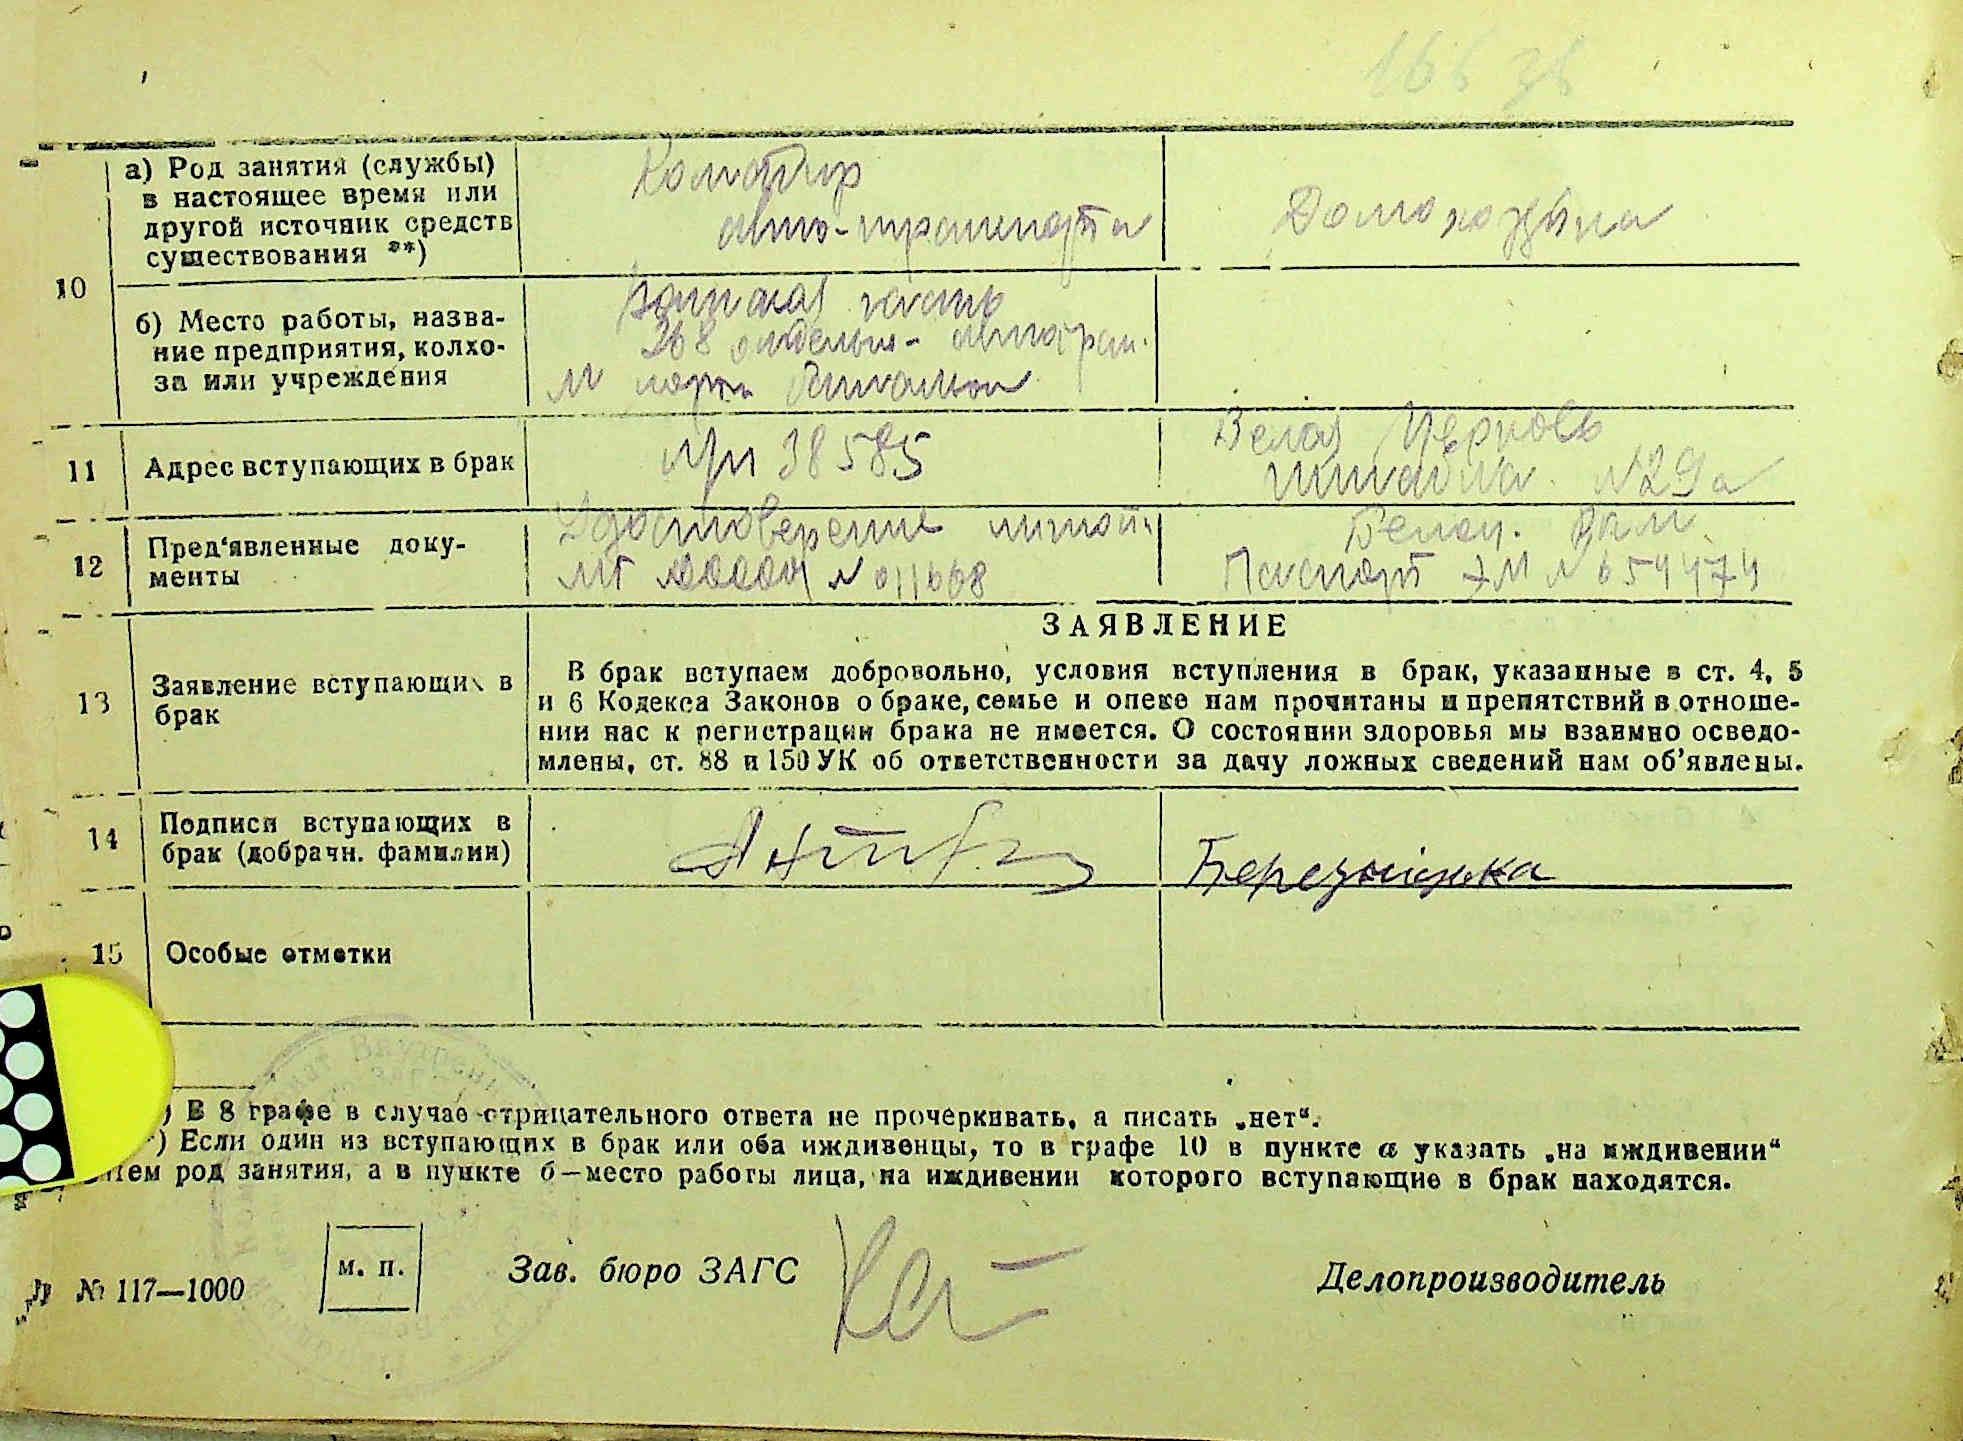 а) Род занятия (службы)
в настоящее время или
другой источник средств
существования **)
авто-транспорта
Домохозяйка
10
б) Место работы, назва-
ние предприятия, колхо-
за или учреждения
часть
368 отдельн.
11
Адрес вступающих в брак
п/п 38585
Белая Церковь
N 29а
12
Пред‘явленные доку-
менты
Удостоверение
N 011668
Паспорт N 654474
13
Заявление вступающих в
брак
ЗАЯВЛЕНИЕ
В брак вступаем добровольно, условия вступления в брак, указанные в ст. 4, 5
и 6 Кодекса Законов о браке, семье и опеке нам прочитаны и препятствий в отноше-
нии нас к регистрации брака не имеется. О состоянии здоровья мы взаимно осведо-
млены, ст. 88 и 150 УК об ответственности за дачу ложных сведений нам об’явлены.
14
Подписи вступающих в
брак (добрачн. фамилии)
15
Особые отметки
) В 8 графе в случае отрицательного ответа не прочеркивать, а писать „нет“.
*) Если один из вступающих в брак или оба иждивенцы, то в графе 10 в пункте а указать „на иждивении“
род занятия, а в пункте б—место работы лица, на иждивении которого вступающие в брак находятся.
№ 117—1000
м. п.
Зав. бюро ЗАГС
Делопроизводитель